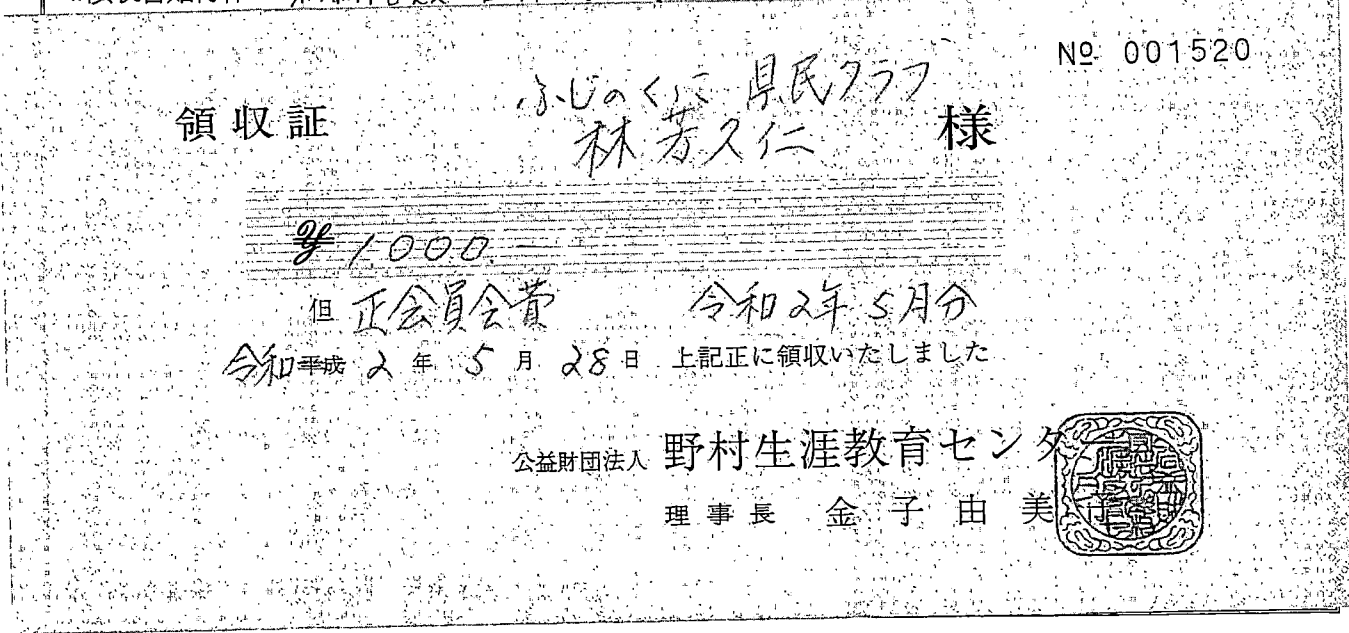 № 001520
ふじのくに 県民クラブ
領収証 林芳久仁 様
¥1,000.―
但 正会員会費 令和2年5月分
令和平成 2 年 5 月 28 日 上記正に領収いたしました
公益財団法人 野村生涯教育センター
理事長 金子由美子